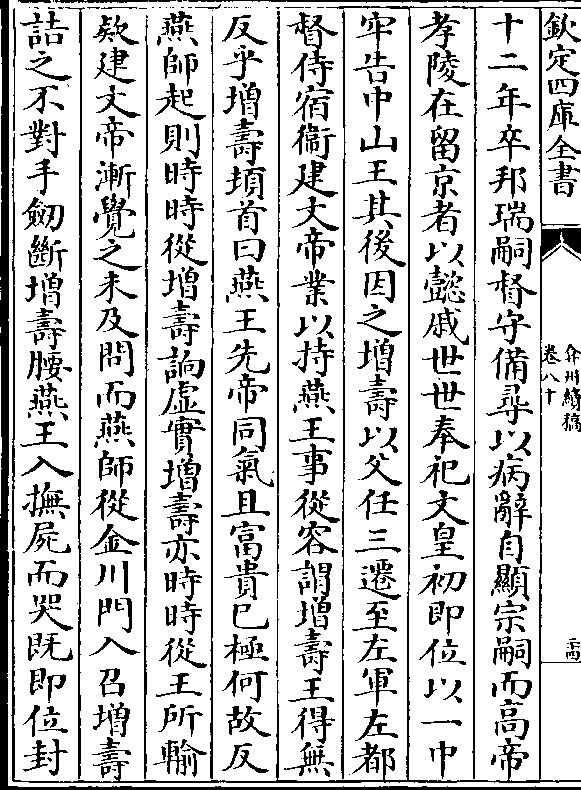 欽定四庫全書
弇州續稿
卷八十
十二年卒邦瑞嗣督守備尋以病辭自顯宗嗣而高帝
孝陵在留京者以懿戚世世奉祀文皇初即位以一中
牢告中山王其後因之增壽以父任三遷至左軍左都
督侍宿衞建文帝業以持燕王事從容謂增壽王得無
反乎增壽頊首曰燕王先帝同氣且富貴已極何故反
燕師起則時時從增壽詗虛實增壽亦時時從王所輸
欵建文帝漸覺之未及問而燕師從金川門入召增壽
詰之不對手劒斷增壽腰燕王入撫屍而哭既即位封